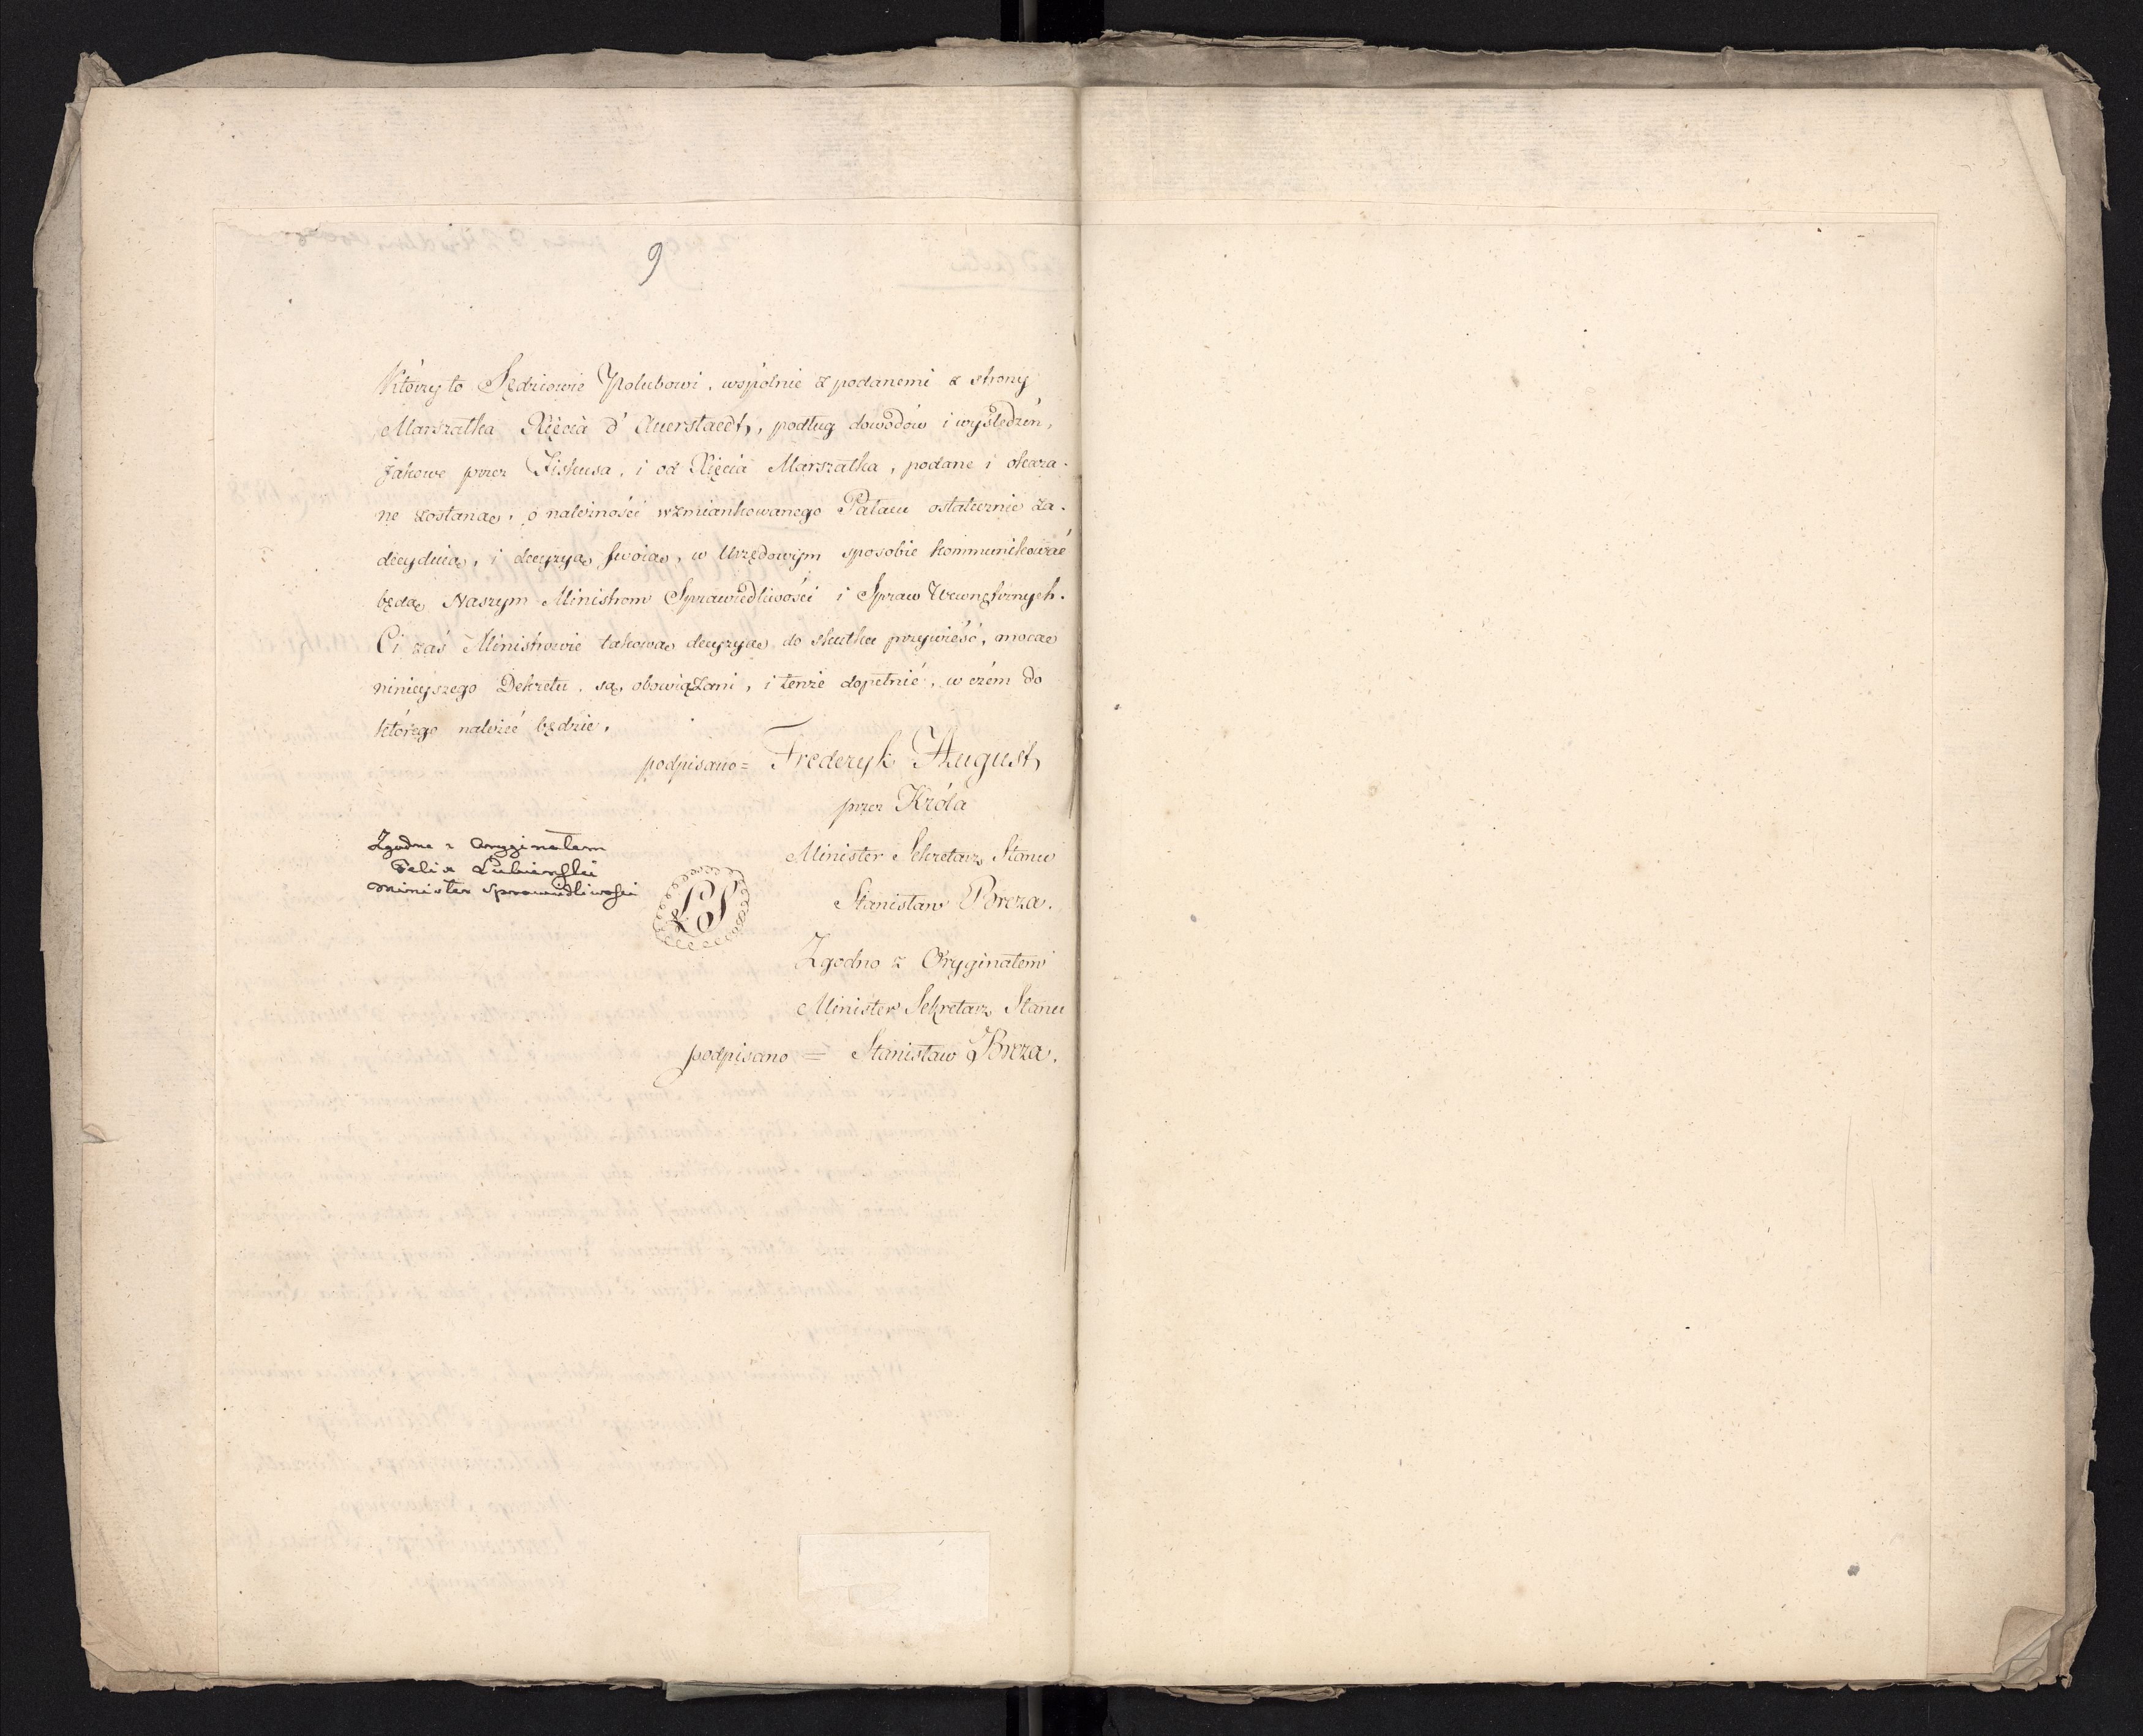 9
Którzy to Sędziowie Polubowi, wspólnie z podanemi z strony
Marszałka Xięcia d'Auerstaedt, podług dowodów i wyśledzeń,
jakowe przez Fiskusa, i od Xięcia Marszałka, podane i okaza-
ne zostaną, o należności wzmiankowanego Pałacu ostatecznie za-
decydują, i decyzyą swoią, w Urzędowym sposobie kommunikować
będą Naszym Ministrom Sprawiedliwości i Spraw Wewnętrznych.
Ci zaś Ministrowie takową decyzyą do skutku przywieść, mocą
ninieyszego Dekretu, są obowiązani, i tenże dopełnić, w czém do
którego należeć będzie.
podpisano = Frederyk August,
przez Króla
Minister Sekretarz Stanu
Stanisław Breza.
Zgodno z Oryginałem
Minister Sekretarz Stanu
podpisano = Stanisław Breza.
Zgodne z Oryginałem
Felix Lubieński
Minister Sprawiedliwości
LS